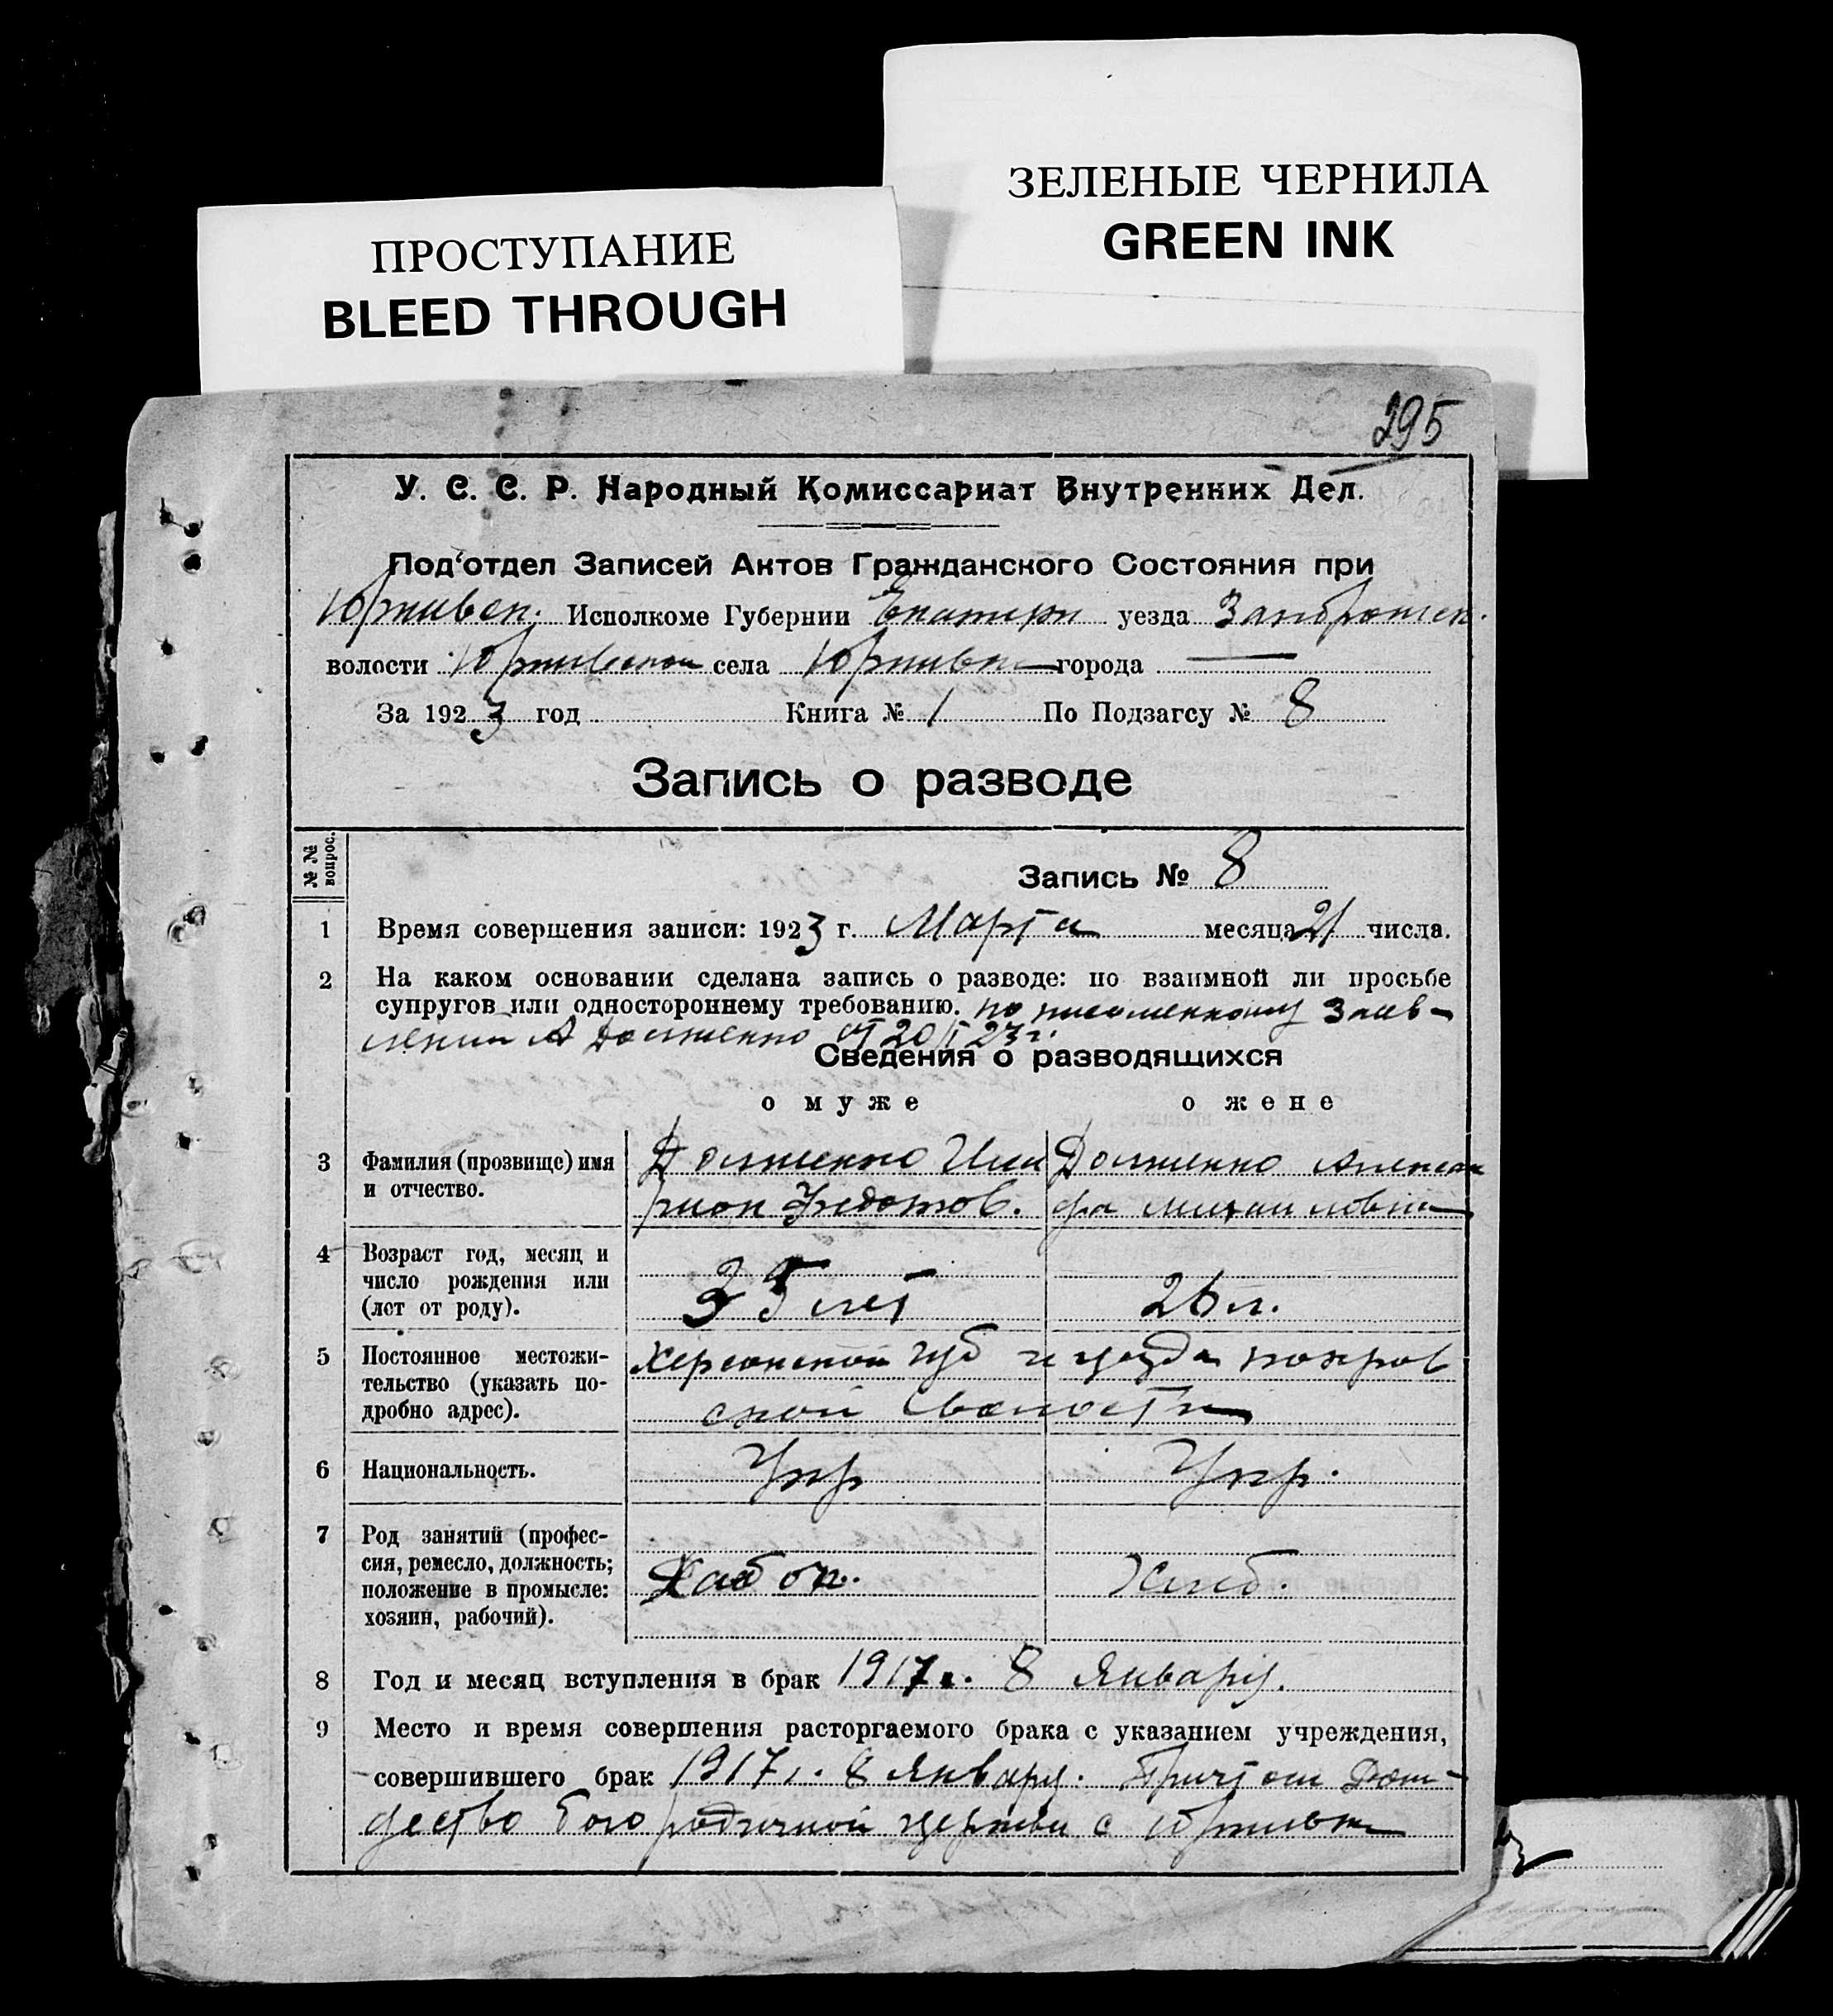 ЗЕЛЕНЫЕ ЧЕРНИЛА
GREEN INK
ПРОСТУПАНИЕ
BLEED THROUGH
295
У. С. С. Р. Народный Комиссариат Внутренних Дел.
Под‘отдел Записей Актов Гражданского Состояния при
Юрьивск. Исполкоме Губернии Екатерин уезда
волости Юрьивской села Юрьивки города —
За 1923 год Книга № 1 По Подзагсу № 8
Запись о разводе
№ № вопрос.
Запись № 8
1 Время совершения записи: 1923 г. Марта месяца 21 числа.
2 На каком основании сделана запись о разводе: по взаимной ли просьбе
супругов или одностороннему требованию. по писоменному Заяв-
лению А Долженко от 20/ 23 г.
Сведения о разводящихся
о муже о жене
3 Фамилия (прозвище) имя и отчество. Долженко Илларион Федотов. Долженко Александра Михайловна
4 Возраст год, месяц и
число рождения или
(лет от роду). 35 лет 26 л.
5 Постоянное местожи-
тельство (указать по-
дробно адрес). Херсонской губ и уезда покров
ской волости
6 Национальность. Укр Укр.
7 Род занятий (профес-
сия, ремесло, должность;
положение в промысле:
хозяин, рабочий). Хлеб.
8 Год и месяц вступления в брак 1917 г. 8 Январу.
9 Место и время совершения расторгаемого брака с указанием учреждения,
совершившего брак 1917 г. 8 Январу. Причтом Рож-
дество богородичной церкви с Юрьивки